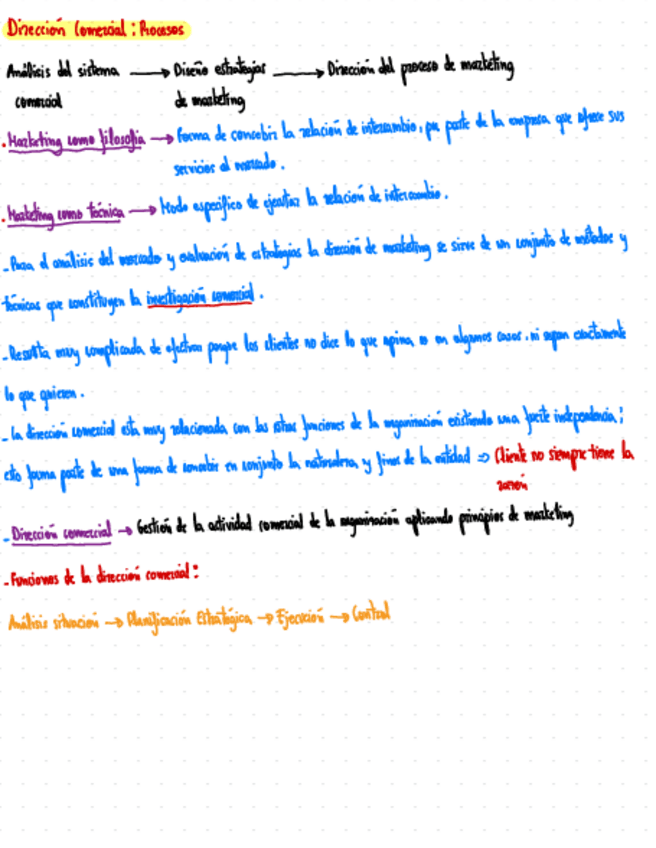 Dirección Comercial: Procesos
Análisis del sistema → Diseño estrategias → Dirección del proceso de marketing
comercial de marketing
. Marketing como filosofía → Forma de concebir la relación de intercambio, por parte de la empresa que ofrece sus
servicios al mercado.
. Marketing como técnica → Modo específico de ejecutar la relación de intercambio.
- Para el análisis del mercado y evaluación de estrategias la dirección de marketing se sirve de un conjunto de métodos y
técnicas que constituyen la investigación comercial.
- Resulta muy complicada de efectuar porque los clientes no dice lo que opina, o en algunos casos, ni sepan exactamente
lo que quieren.
- La dirección comercial esta muy relacionada con las otras funciones de la organización existiendo una fuerte independencia;
esto forma parte de una forma de concebir en conjunto la naturaleza y fines de la entidad ⇒ Cliente no siempre tiene la
razón
- Dirección comercial → Gestión de la actividad comercial de la organización aplicando principios de marketing
- Funciones de la dirección comercial:
Análisis situación → Planificación Estratégica → Ejecución → Control